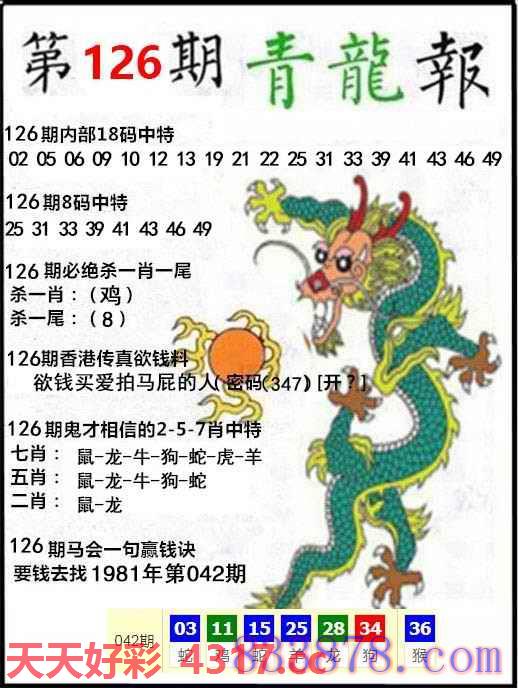 第126期 青龍報
126期内部18码中特
02 05 06 09 10 12 13 19 21 22 25 31 33 39 41 43 46 49
126期8码中特
25 31 33 39 41 43 46 49
126期必绝杀一肖一尾
杀一肖：（鸡）
杀一尾：（8）
126期香港传真欲钱料
欲钱买爱拍马屁的人(密码(347) [开？]
126期鬼才相信的2-5-7肖中特
七肖： 鼠-龙-牛-狗-蛇-虎-羊
五肖： 鼠-龙-牛-狗-蛇
二肖： 鼠-龙
126期马会一句赢钱诀
要钱去找1981年第042期
042期 03 11 15 25 28 34 36
蛇 鸡 蛇 羊 龙 狗 猴
天天好彩 4317.cc